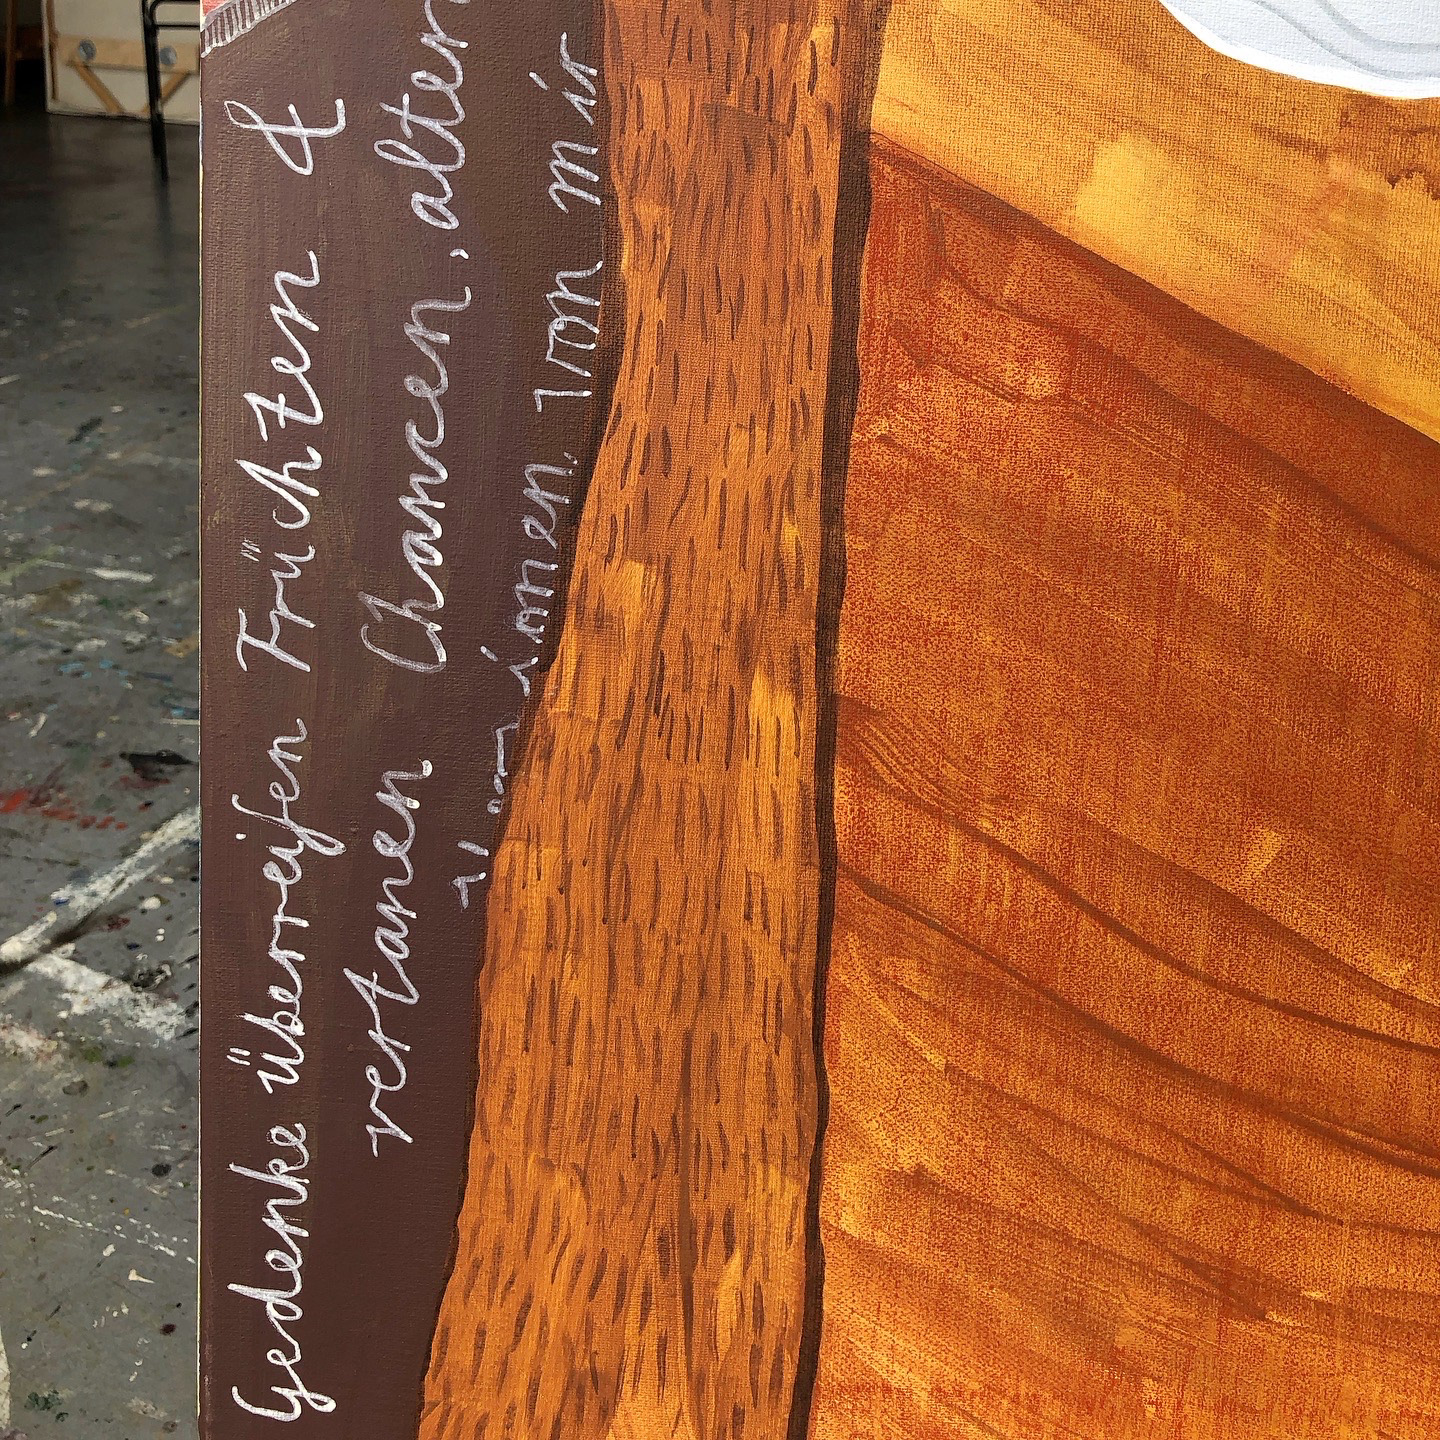 Gedenke überreifen Früchten &
vertanen Chancen, alten
von mir